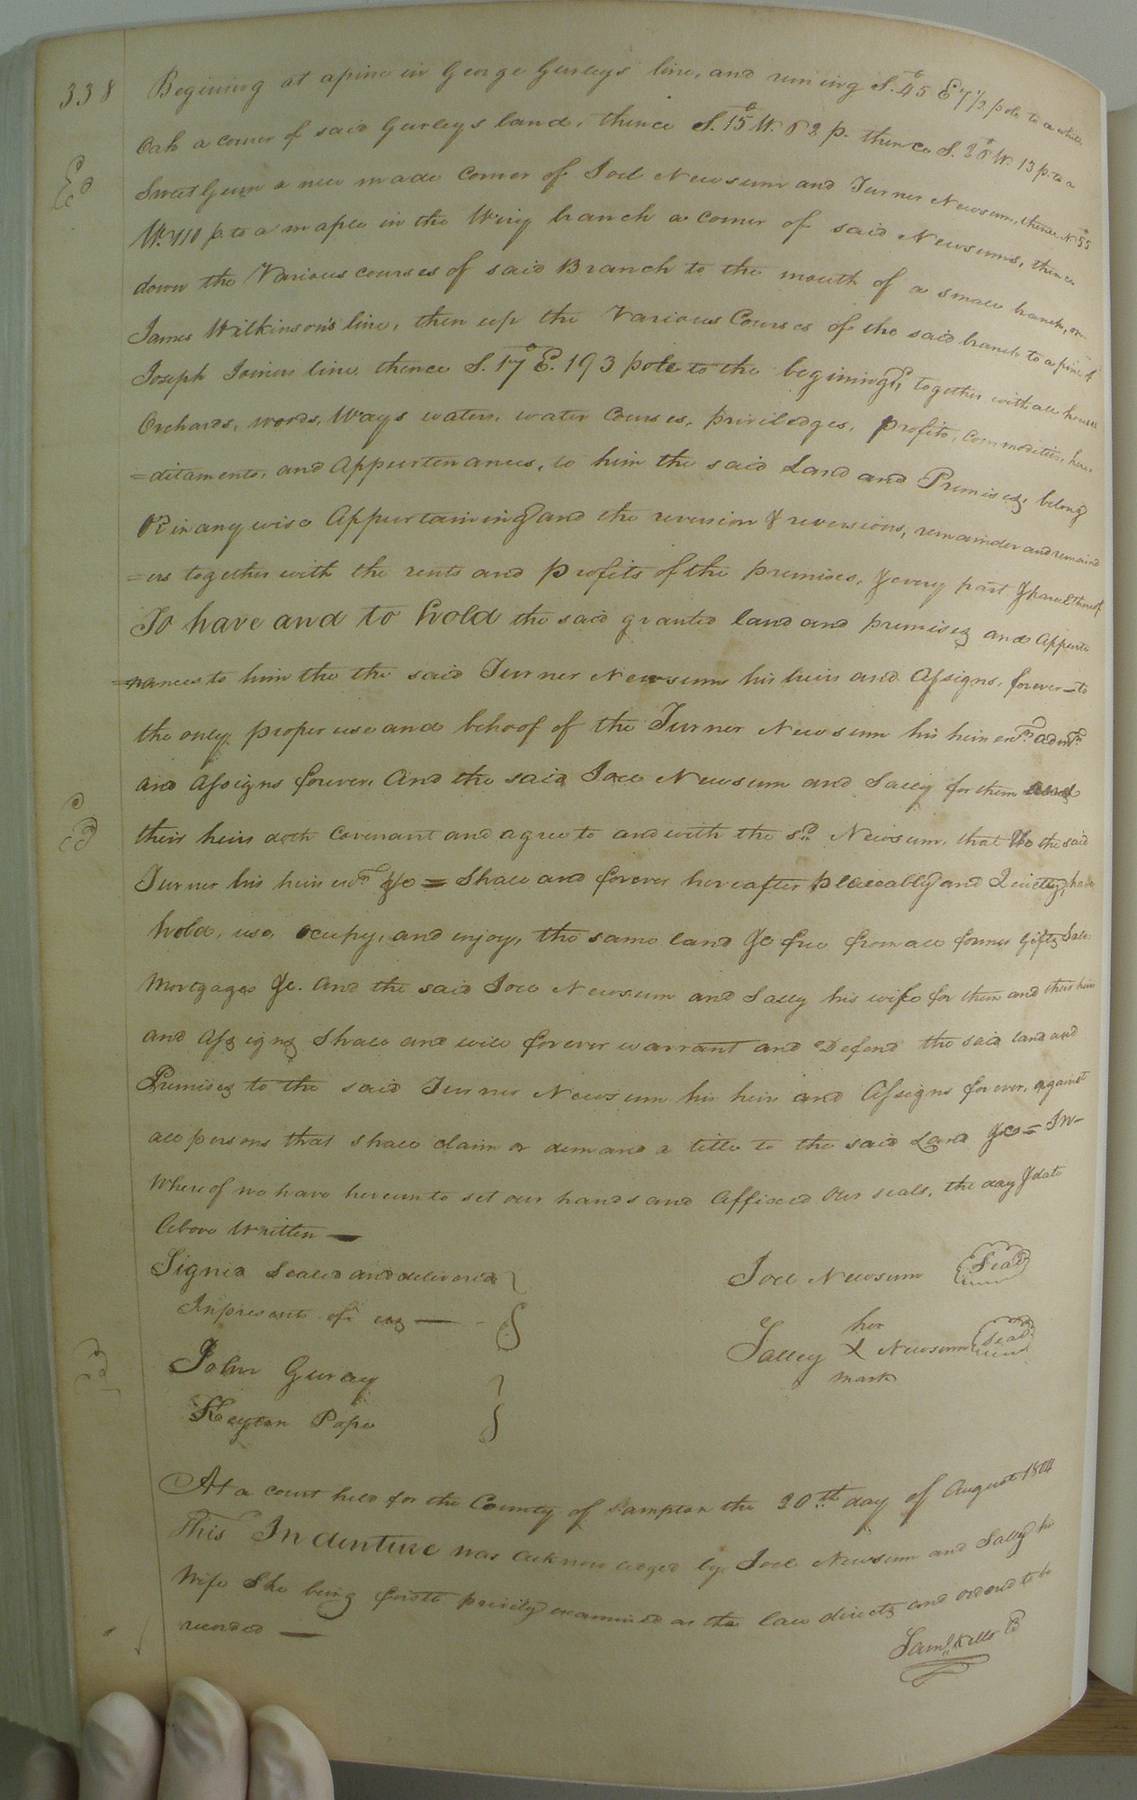 338
Begining at a pine in George Gurleys line, and runing S. 45 E 7 1/2 pole to a white
Oak a corner of said Gurleys land, thence S. 15° W. 82 p. thence S. 28° W. 13 p. to a
Sweet Gum a new made corner of Joel Newsum and Turner Newsum, thence N. 55
W. 110 p. to a maple in the Wiry branch a corner of said Newsums, thence
down the Various courses of said Branch to the mouth of a small branch, on
James Wilkinson's line, then up the Various Courses of the said branch to a pine of
Joseph Joiners line thence S. 17° E. 193 pole to the begiming, together with all houses
Orchards, woods, Ways waters, water Courses, priviledges, profits, commodities, here
=ditaments, and Appurtenances, to him the said Land and Premises, belong
Or in any wise Appurtaining and the reversion & reversions, remainder and remaind
=ers together with the rents and profits of the premises, & every part & parcel thereof
To have and to hold the said granted land and premises and Appurte
=nances to him the the said Turner Newsum his heirs and Assigns, forever to
the only proper use and behoof of the Turner Newsum his heirs exrs. admrs.
and Assigns forever. And the said Joel Newsum and Salley for them and
their heirs doth Covenant and agree to and with the sd. Newsum, that he the said
Turner his heirs exrs &c = Shall and forever hereafter placeably and Quietly, have
hold, use, Ocupy, and enjoy, the same land &c free from all former Gifts Sales
Mortgages &c. And the said Joel Newsum and Salley his wife for them and their heirs
and Assigns Shall and will forever warrant and Defend the said land and
Premises to the said Turner Newsum his heirs and Assigns forever, against
all persons that shall claim or demand a title to the said Land &c = In
Whereof we have hereunto set our hands and Affixed Our seals, the day & date
Above Written
Signed Sealed and delivered
In presents of us
John Guray
Joel Newsum Seal
her
Salley X Newsum Seal
mark
Pope
At a court held for the County of Sampton the 20th day of August 1804
This Indenture was acknowledged by Joel Newsum and Salley his
Wife She being firstt privily examined as the law directs and ordered to be
recorded
Saml. Kello C